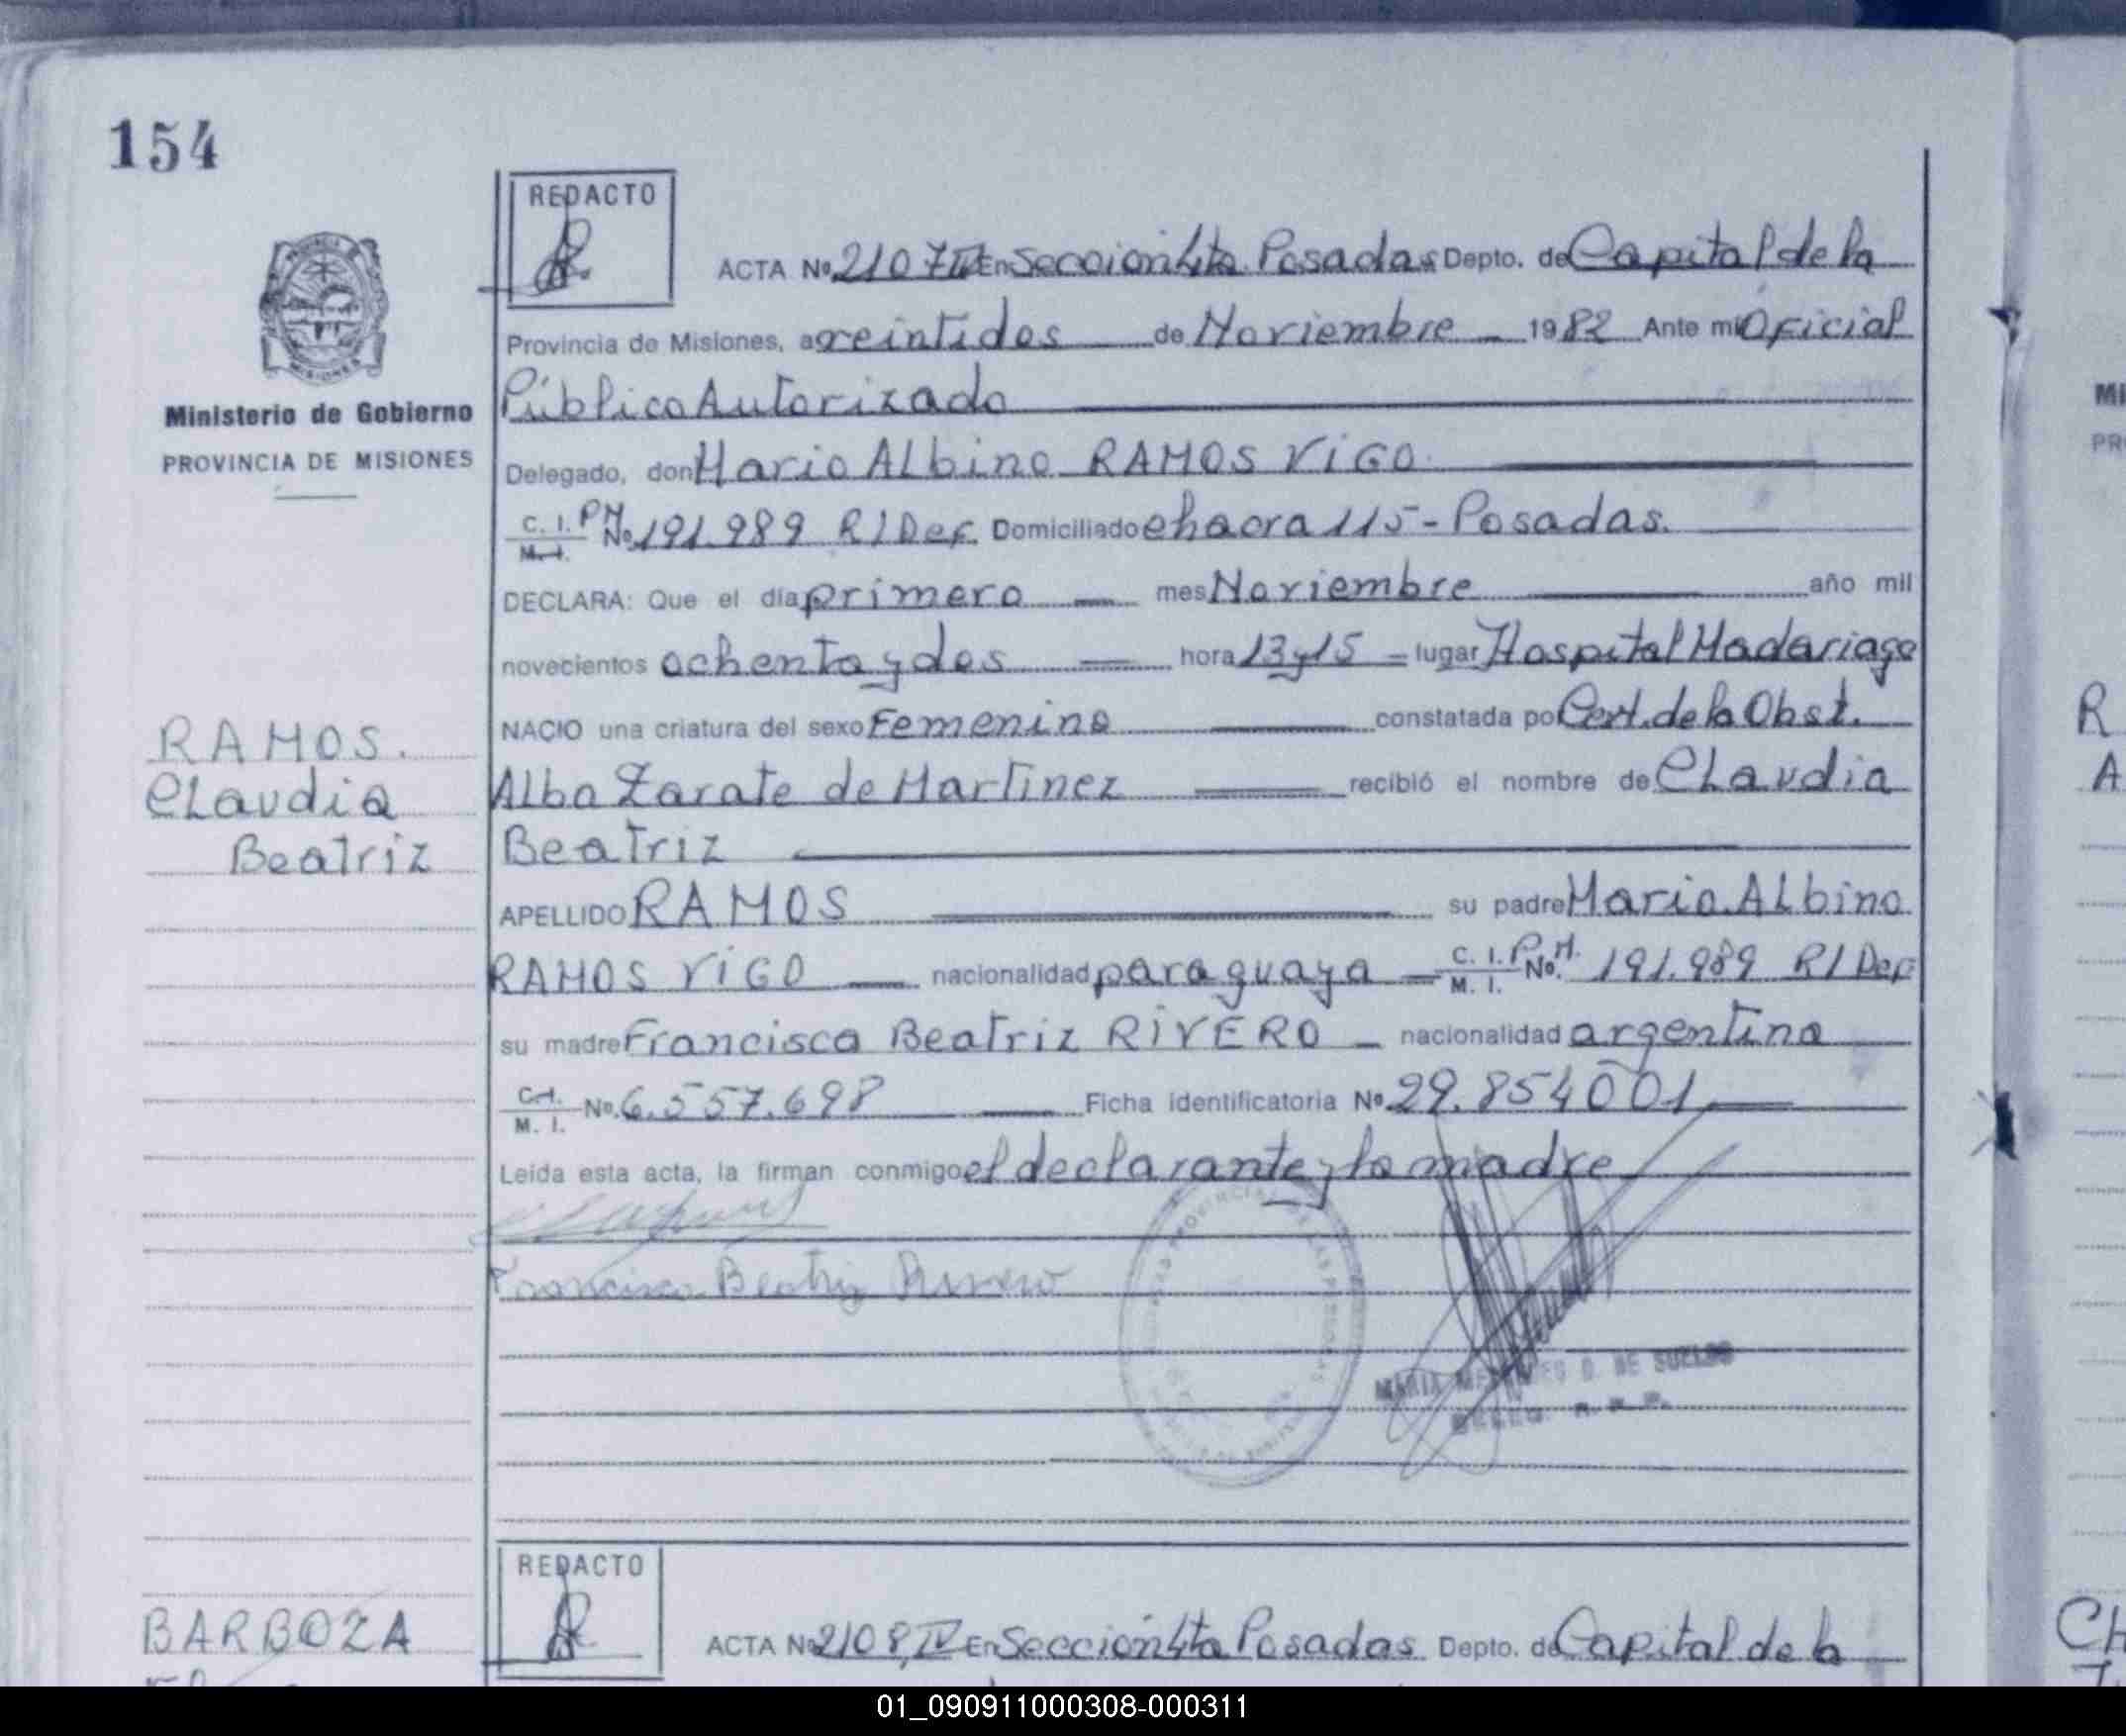 154
REDACTO
ACTA Nº 2107 IV En Sección 4ta Posadas Depto. de Capital de la
Provincia de Misiones, a veintidos de Noviembre 1982 Ante mi Oficial
Ministerio de Gobierno
PROVINCIA DE MISIONES
Público Autorizado
Delegado, don Mario Albino RAMOS ViGO
C. I. P M. I. Nº 191.989 R/Def. Domiciliado chacra 115 - Posadas.
DECLARA: Que el día primero mes Noviembre año mil
novecientos ochenta y dos hora 13 y 15 lugar Hospital Madariaga
NACIO una criatura del sexo Femenino constatada por Cert. de la Obst.
Alba Zarate de Martinez recibió el nombre de Claudia
Beatriz
RAMOS.
Claudia
Beatriz
APELLIDO RAMOS su padre Mario Albino
RAMOS ViGO nacionalidad paraguaya C. I. P.M. M. I. Nº 191.989 R/Def
su madre Francisca Beatriz RiVERO nacionalidad argentina
C. I. M. I. Nº 6.557.698 Ficha identificatoria Nº 29.854001
Leida esta acta, la firman conmigo el declarante y la madre
Francisca Beatriz Rivero
MARIA D. DE SUELDO
REDACTO
BARBOZA
ACTA Nº 2108, IV En Sección 4ta Posadas Depto. de Capital de la
01_090911000308-000311